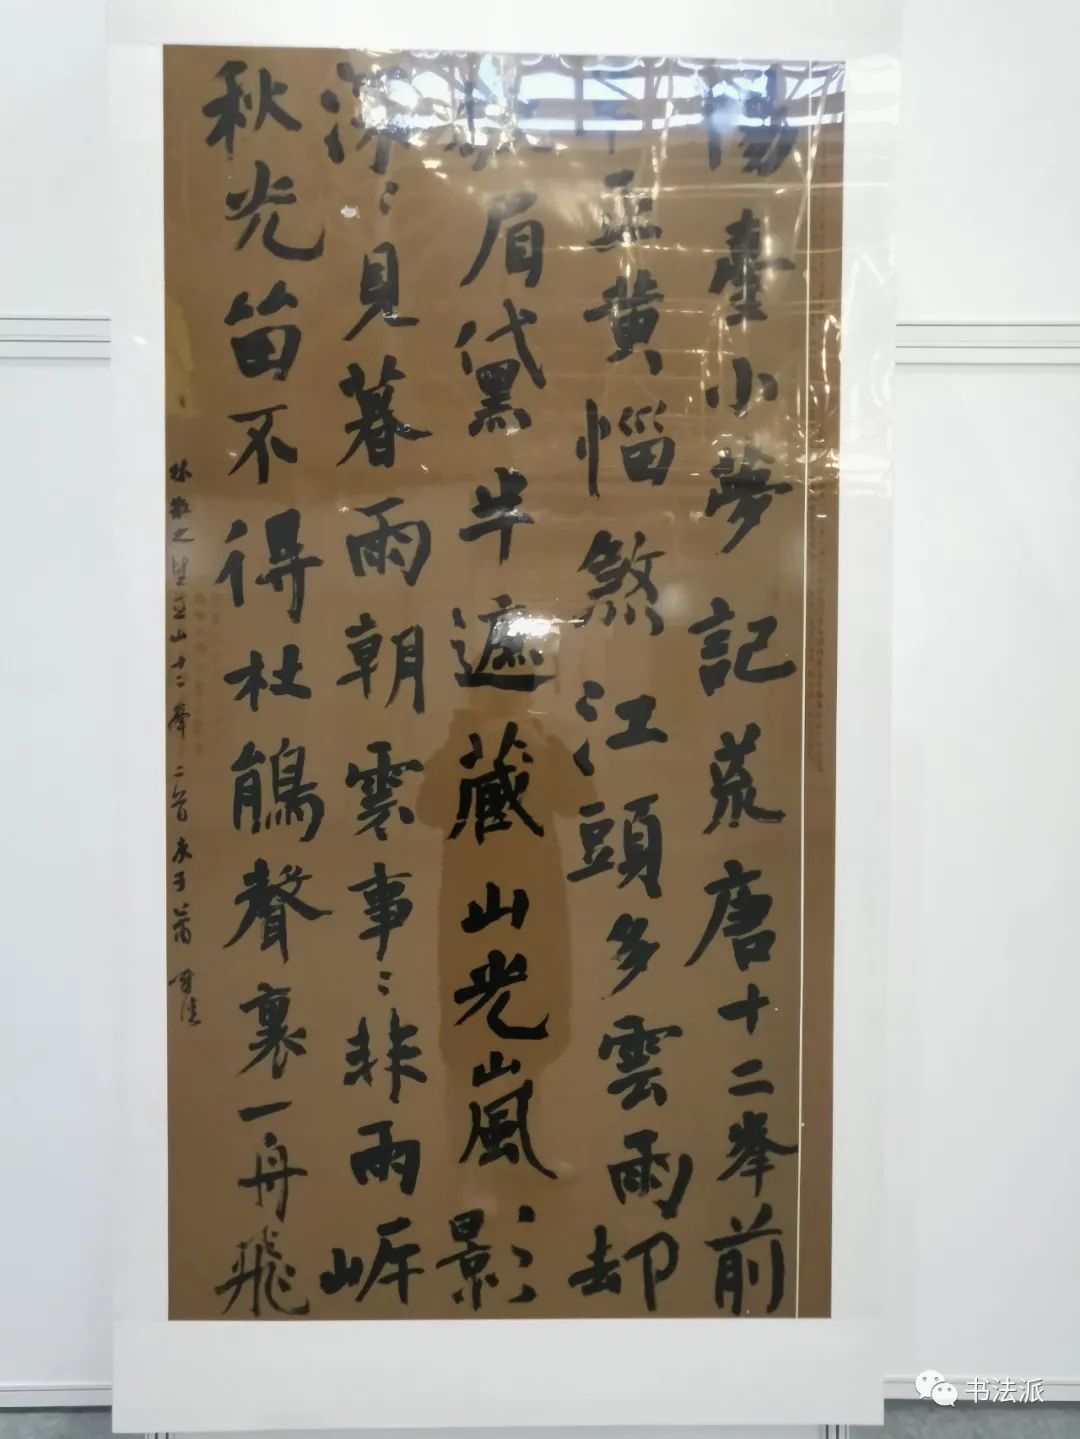 陽臺小夢記荒唐十二峯前
正黄惱煞江頭多雲雨却
眉黛半遮藏山光嵐影
深〻見暮雨朝雲事〻非兩岸
秋光留不得杜鵑聲裏一舟飛
林散之望巫山十二峯二首庚子
书法派